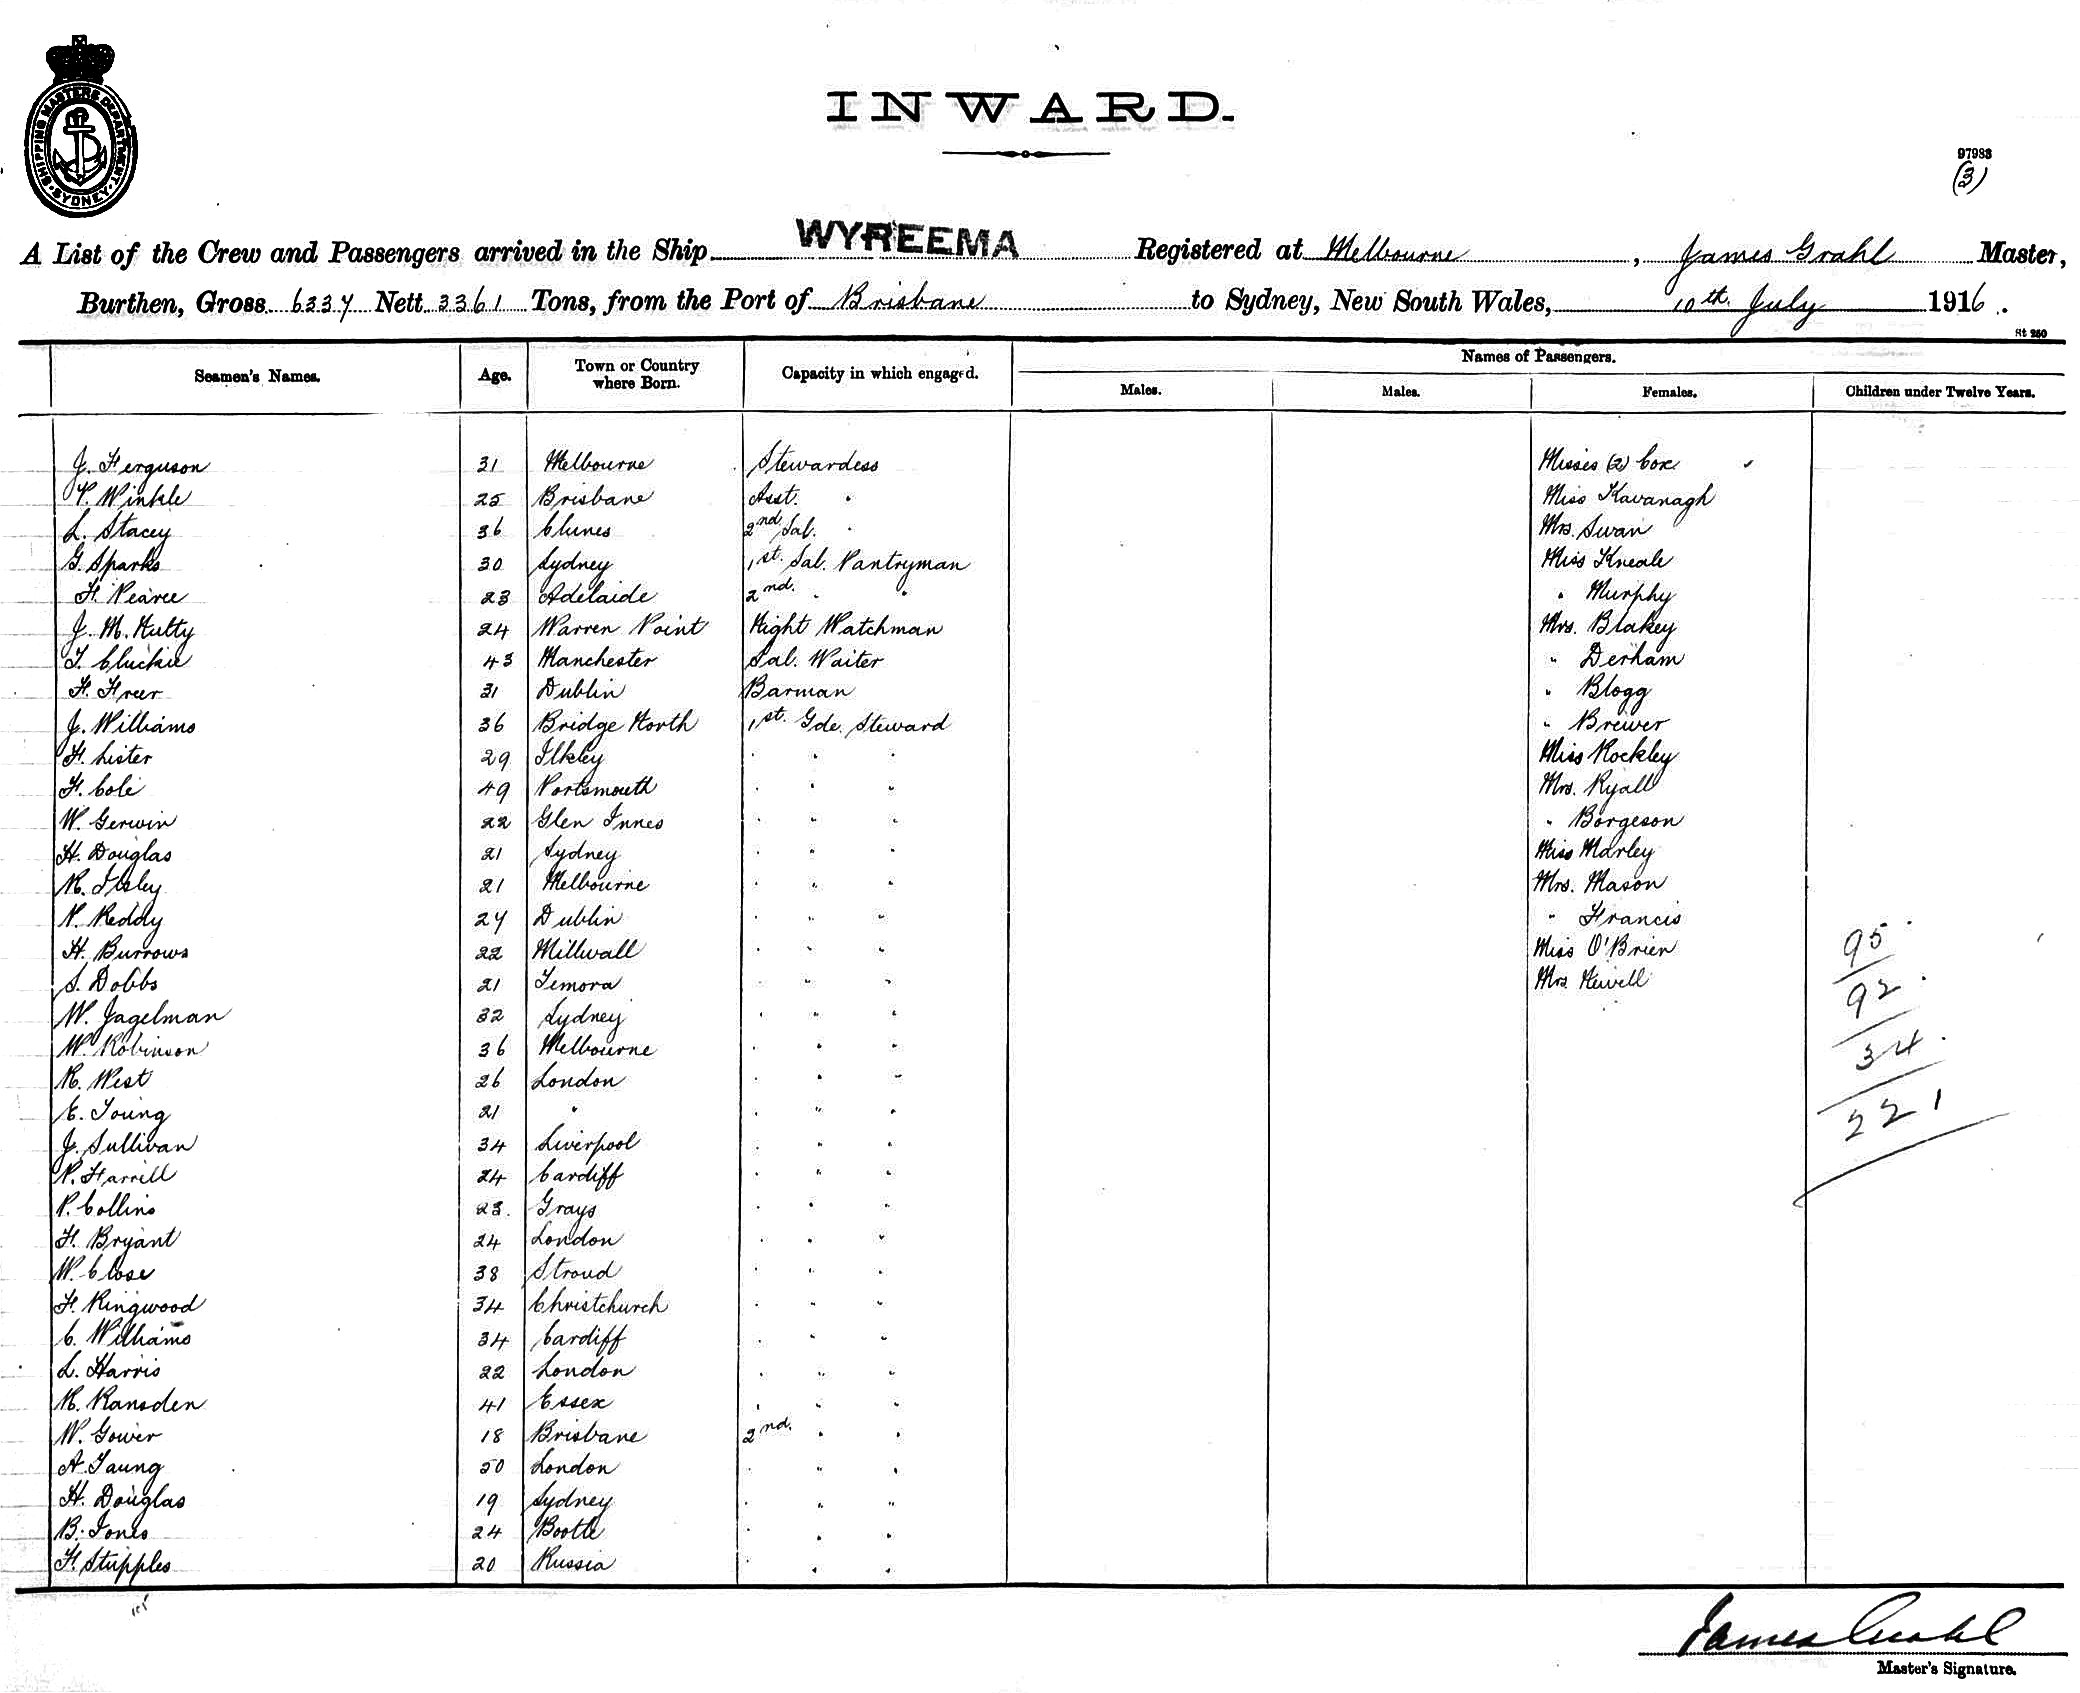 SHIPPING MASTERS DEPARTMENT. SYDNEY
INWARD.
97983
(3)
A List of the Crew and Passengers arrived in the Ship WYREEMA Registered at Melbourne, James Grahl Master,
Burthen, Gross 6337 Nett 3361 Tons, from the Port of Brisbane to Sydney, New South Wales, 10th July 1916.
St 250
Seamen's Names. Age. Town or Country where Born. Capacity in which engaged. Names of Passengers.
Males. Males. Females. Children under Twelve Years.
J. Ferguson 31 Melbourne Stewardess Misses (2) Cox
P. Winkle 25 Brisbane Asst. " Miss Kavanagh
L. Stacey 36 Clunes 2nd Sal. " Mrs. Swan
G. Sparks 30 Sydney 1st. Sal. Pantryman Miss Kneale
H. Pearce 23 Adelaide 2nd. " " " Murphy
J. M. Nulty 24 Warren Point Night Watchman Mrs. Blakey
T. Cluckie 43 Manchester Sal. Waiter " Derham
F. Freer 31 Dublin Barman " Blogg
J. Williams 36 Bridge North 1st. Gde. Steward " Brewer
F. Lister 29 Ilkley " " " Miss Rockley
F. Cole 49 Portsmouth " " " Mrs. Ryall
W. Gerwin 22 Glen Innes " " " " Borgeson
H. Douglas 21 Sydney " " " Miss Marley
R. Ilsley 21 Melbourne " " " Mrs. Mason
P. Reddy 27 Dublin " " " " Francis
H. Burrows 22 Millwall " " " Miss O'Brien 95
S. Dobbs 21 Temora " " " Mrs Newell 92
W. Jagelman 32 Sydney " " "
W. Robinson 36 Melbourne " " " 34
R. West 26 London " " "
E. Young 21 " " " " 221
J. Sullivan 34 Liverpool " " "
P. Farrill 24 Cardiff " " "
P. Collins 23. Grays " " "
F. Bryant 24 London " " "
W. Close 38 Stroud " " "
F. Ringwood 34 Christchurch " " "
C. Williams 34 Cardiff " " "
L. Harris 22 London " " "
R. Ransden 41 Essex " " "
W. Gower 18 Brisbane 2nd. " "
A. Taung 50 London " " "
H. Douglas 19 Sydney " " "
B. Jones 24 Bootle " " "
F. Stupples 20 Russia " " "
James Grahl
Master's Signature.